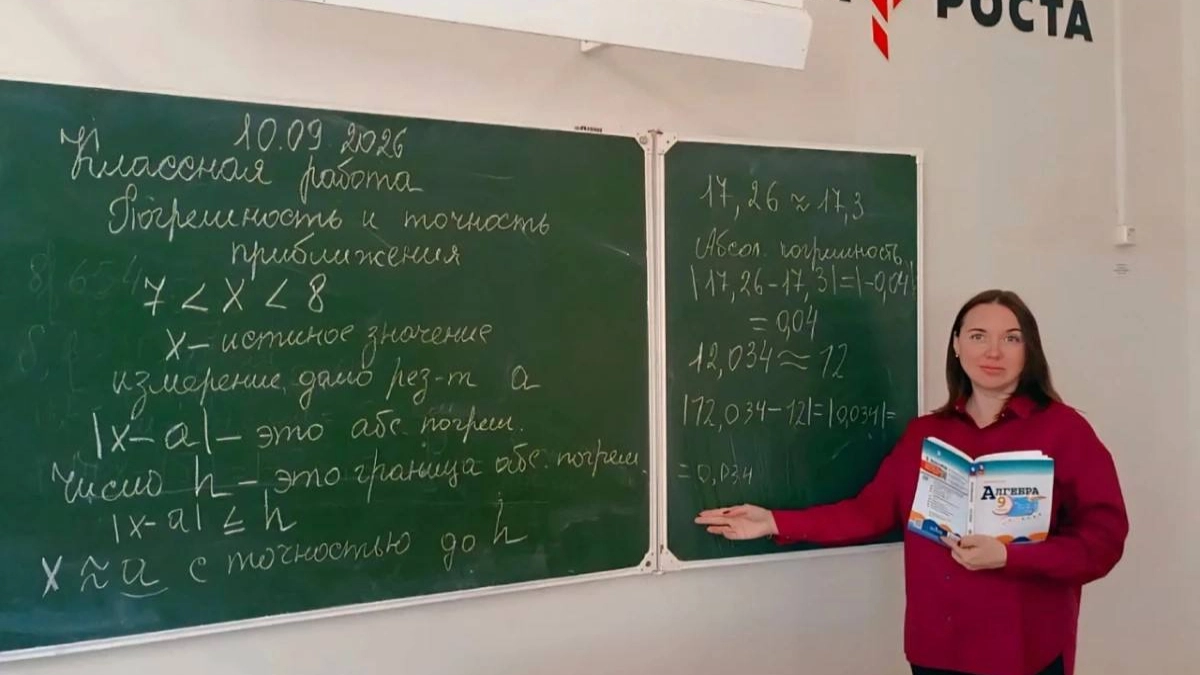 РОСТА
10.09.2026
Классная работа
Погрешность и точность
приближения
7 < x < 8
x – истиное значение
измерение дало рез-т a
|x-a| – это абс. погреш.
Число h – это граница абс. погреш.
|x-a| ≤ h
x ≈ a с точностью до h
17,26 ≈ 17,3
Абсол. погрешность
|17,26-17,3|=|-0,04|
= 0,04
12,034 ≈ 12
|12,034-12|=|0,034|=
= 0,034
АЛГЕБРА
9